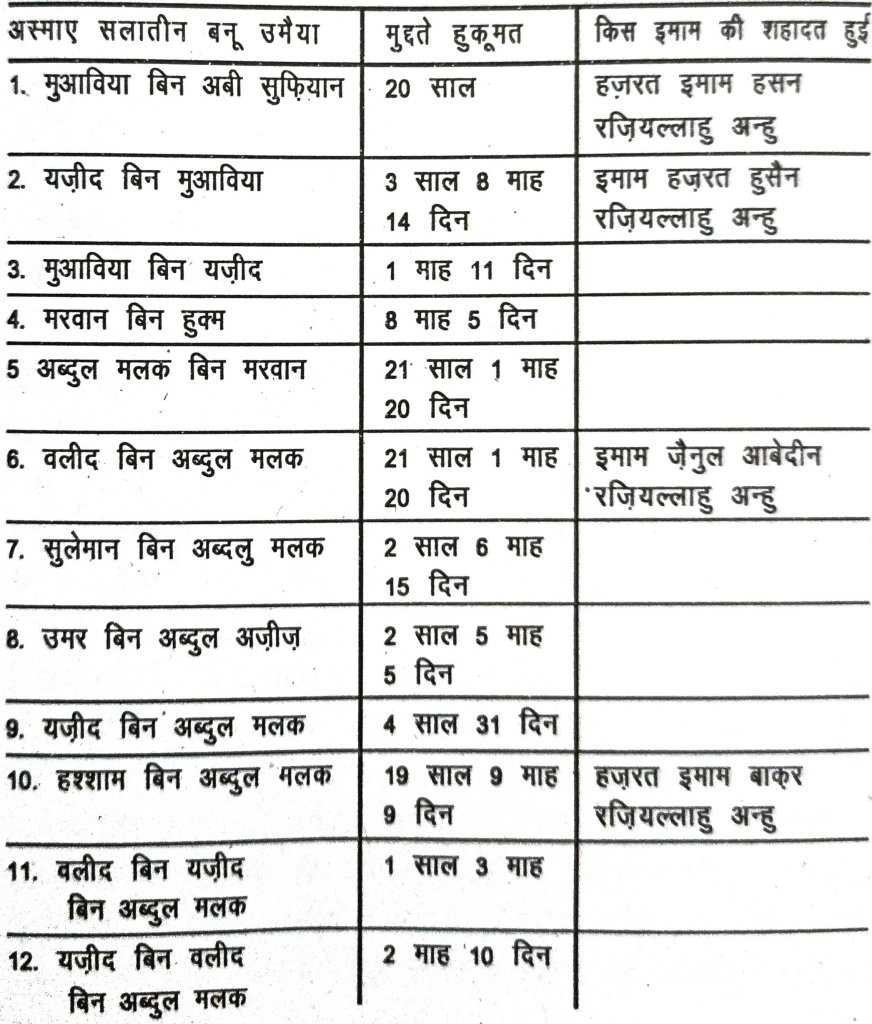 अस्माए सलातीन बनू उमैया मुद्दते हुकूमत किस इमाम की शहादत हुई
1. मुआविया बिन अबी सुफ़ियान 20 साल हज़रत इमाम हसन
रज़ियल्लाहु अन्हु
2. यज़ीद बिन मुआविया 3 साल 8 माह इमाम हज़रत हुसैन
14 दिन रज़ियल्लाहु अन्हु
3. मुआविया बिन यज़ीद 1 माह 11 दिन
4. मरवान बिन हुक्म 8 माह 5 दिन
5 अब्दुल मलक बिन मरवान 21 साल 1 माह
20 दिन
6. वलीद बिन अब्दुल मलक 21 साल 1 माह इमाम ज़ैनुल आबेदीन
20 दिन रज़ियल्लाहु अन्हु
7. सुलेमान बिन अब्दलु मलक 2 साल 6 माह
15 दिन
8. उमर बिन अब्दुल अज़ीज़ 2 साल 5 माह
5 दिन
9. यज़ीद बिन अब्दुल मलक 4 साल 31 दिन
10. हश्शाम बिन अब्दुल मलक 19 साल 9 माह हज़रत इमाम बाक़र
9 दिन रज़ियल्लाहु अन्हु
11. वलीद बिन यज़ीद 1 साल 3 माह
बिन अब्दुल मलक
12. यज़ीद बिन वलीद 2 माह 10 दिन
बिन अब्दुल मलक